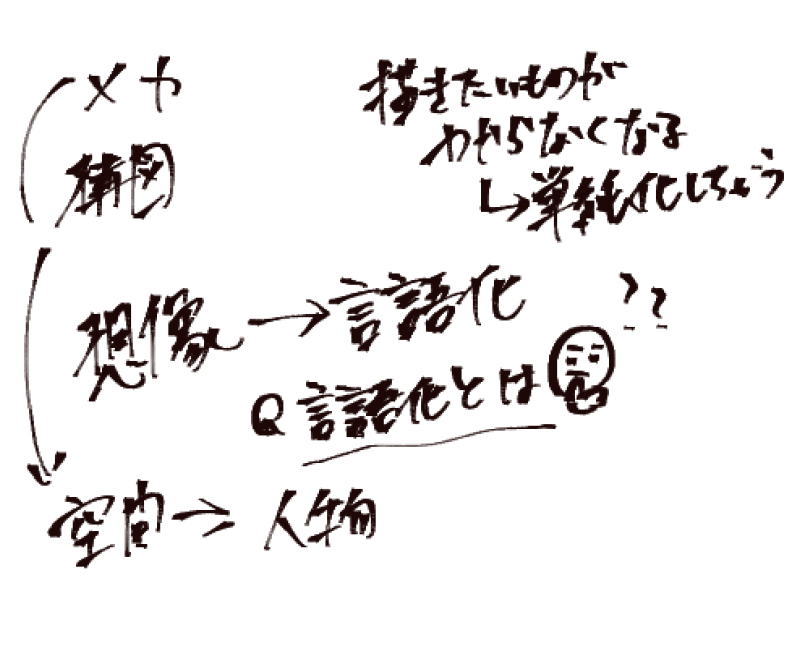 メカ
構図
描きたいものが
わからなくなる
↳単純化しちゃう
想像→言語化 ??
Q 言語化とは
空間→人物